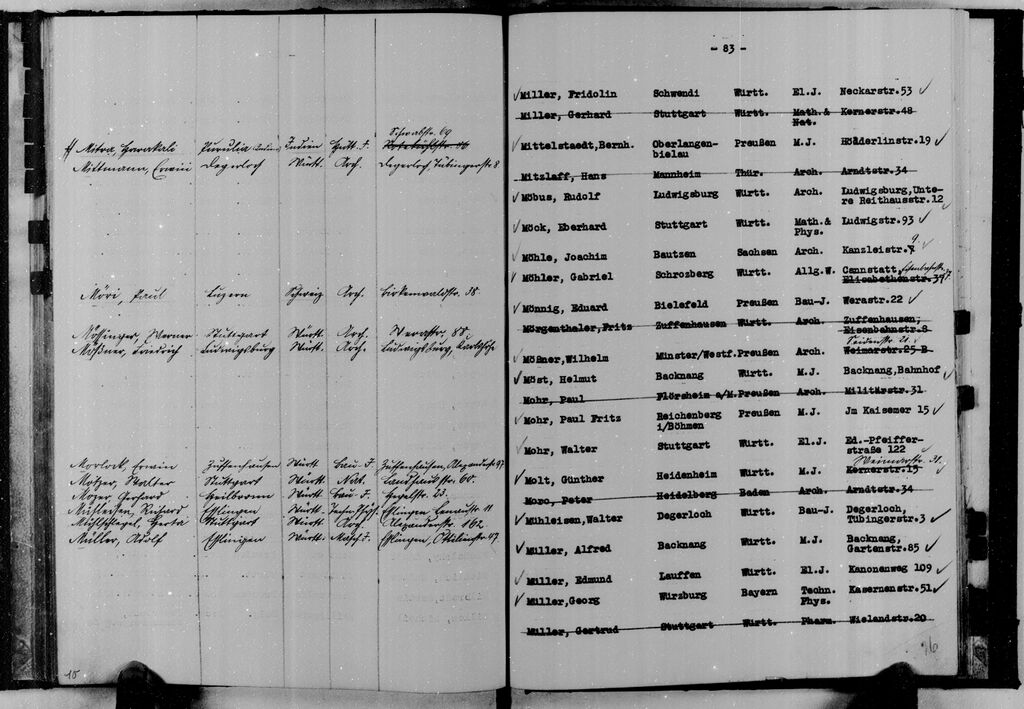 Schwabstr. 69
Mitra, Harakali Purulia Indien
Mittmann, Erwin Degerloch Württ. Arch. Degerloch, Tübingerstr. 8
Möri, Paul Luzern Schweiz Arch. Birkenwaldstr. 38
Mössinger, Werner Stuttgart Württ. Arch. Werastr. 88
Mößner, Friedrich Ludwigsburg Württ. Arch. Ludwigsburg,
Morlock, Erwin Zuffenhausen Württ. Bau-J. Zuffenhausen, Alexanderstr. 47
Motzer, Walter Stuttgart Württ. Nat. Landhausstr. 60.
Mozer, Gerhard Heilbronn Württ. Bau-J. Hegelstr. 23.
Mühleisen, Richard Esslingen Württ. Esslingen, 11
Mühlschlegel, Gerta Stuttgart Württ. Arch. Alexanderstr. 162.
Müller, Adolf Esslingen Württ. Masch.J. Esslingen, 47.
10
- 83 -
Miller, Fridolin Schwendi Württ. El.J. Neckarstr.53
Miller, Gerhard Stuttgart Württ. Math.& Kernerstr.48
Nat.
Mittelstaedt,Bernh. Oberlangen- Preußen M.J. Hölderlinstr.19
bielau
Mitzlaff, Hans Mannheim Thür. Arch. Arndtstr.34
Möbus, Rudolf Ludwigsburg Württ. Arch. Ludwigsburg,Unte-
re Reithausstr.12
Möck, Eberhard Stuttgart Württ. Math.& Ludwigstr.93
Phys.
Möhle, Joachim Bautzen Sachsen Arch. Kanzleistr. 9
Möhler, Gabriel Schrozberg Württ. Allg.W. Cannstatt,
Elisabethenstr.34
Mönnig, Eduard Bielefeld Preußen Bau-J. Werastr.22
Mörgenthaler,Fritz Zuffenhausen Württ. Arch. Zuffenhausen,
Eisenbahnstr.8
Seidenstr. 21
Mößner,Wilhelm Münster/Westf.Preußen Arch. Weimarstr.25 B
Möst, Helmut Backnang Württ. M.J. Backnang,Bahnhof
Mohr, Paul Flörsheim a/M.Preußen Arch. Militärstr.31
Mohr, Paul Fritz Reichenberg Preußen M.J. Jm Kaisemer 15
i/Böhmen
Mohr, Walter Stuttgart Württ. El.J. Ed.-Pfeiffer-
straße 122
Weimarstr. 31
Molt, Günther Heidenheim Württ. M.J. Kernerstr.15
Moro, Peter Heidelberg Baden Arch. Arndtstr.34
Mühleisen,Walter Degerloch Württ. Bau-J. Degerloch,
Tübingerstr.3
Müller, Alfred Backnang Württ. M.J. Backnang,
Gartenstr.85
Müller, Edmund Lauffen Württ. El.J. Kanonenweg 109
Müller,Georg Würzburg Bayern Techn. Kasernenstr.51
Phys.
Müller, Gertrud Stuttgart Württ. Pharm. Wielandstr.20
26